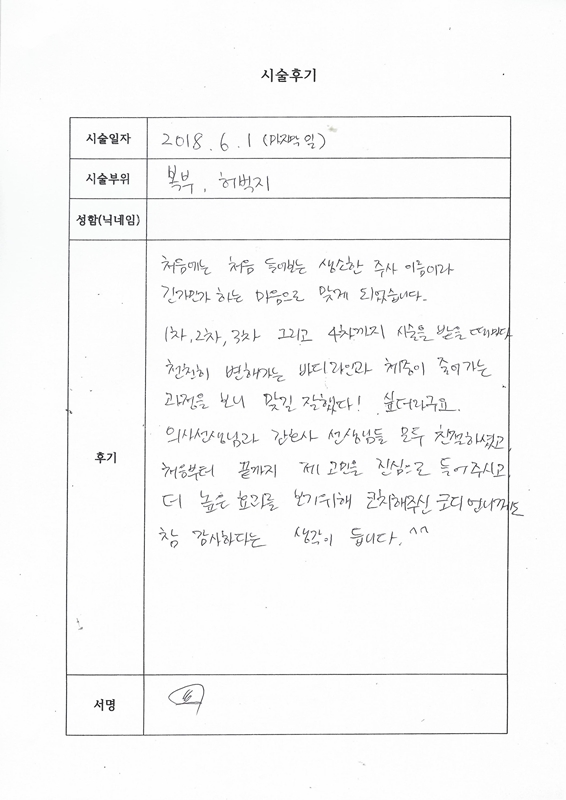 시술후기
시술일자 2018. 6. 1 (마지막 일)
시술부위 복부, 허벅지
성함(닉네임)
후기
처음에는 처음 들어보는 생소한 주사 이름이라
긴가민가 하는 마음으로 맞게 되었습니다.
1차, 2차, 3차 그리고 4차까지 시술을 받을 때마다
천천히 변해가는 바디라인과 체중이 줄어가는
과정을 보니 맞길 잘했다! 싶더라구요.
의사선생님과 간호사 선생님들 모두 친절하셨고
처음부터 끝까지 제 고민을 진심으로 들어주시고
더 높은 효과를 보기위해 코치해주신 코디 언니께도
참 감사하다는 생각이 듭니다. ^^
서명